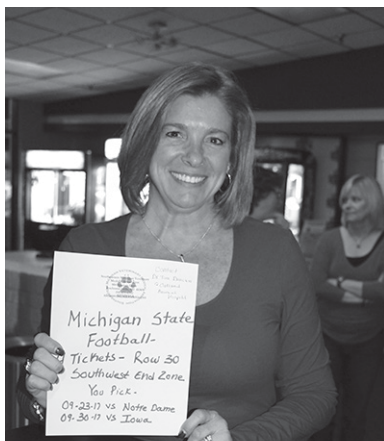 Michigan State
Football-
Tickets- Row 30
Southwest End Zone
You Pick.
09-23-17 vs Notre Dame
09-30-17 vs Iowa